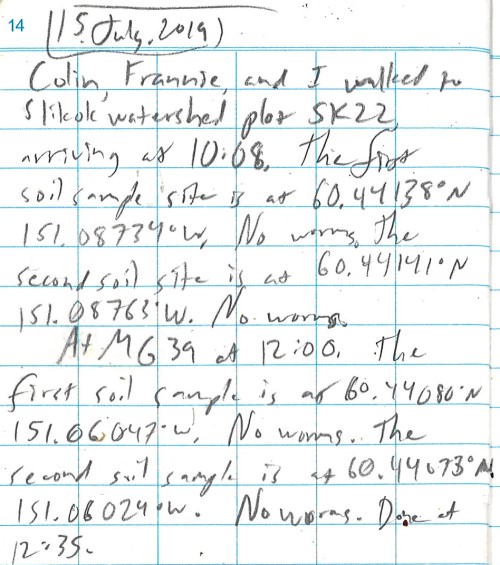 14
(15 July, 2019)
Colin, Frannie, and I walked to
Slikok watershed plot SK22,
arriving at 10:08. The first
soil sample site is at 60.44138°N
151.08734°W. No worms. The
second soil site is at 60.44141°N
151.08763°W. No worms.
At MG39 at 12:00. The
first soil sample is at 60.44080°N
151.06047°W. No worms. The
second soil sample is at 60.44073°N
151.06024°W. No worms. Done at
12:35.